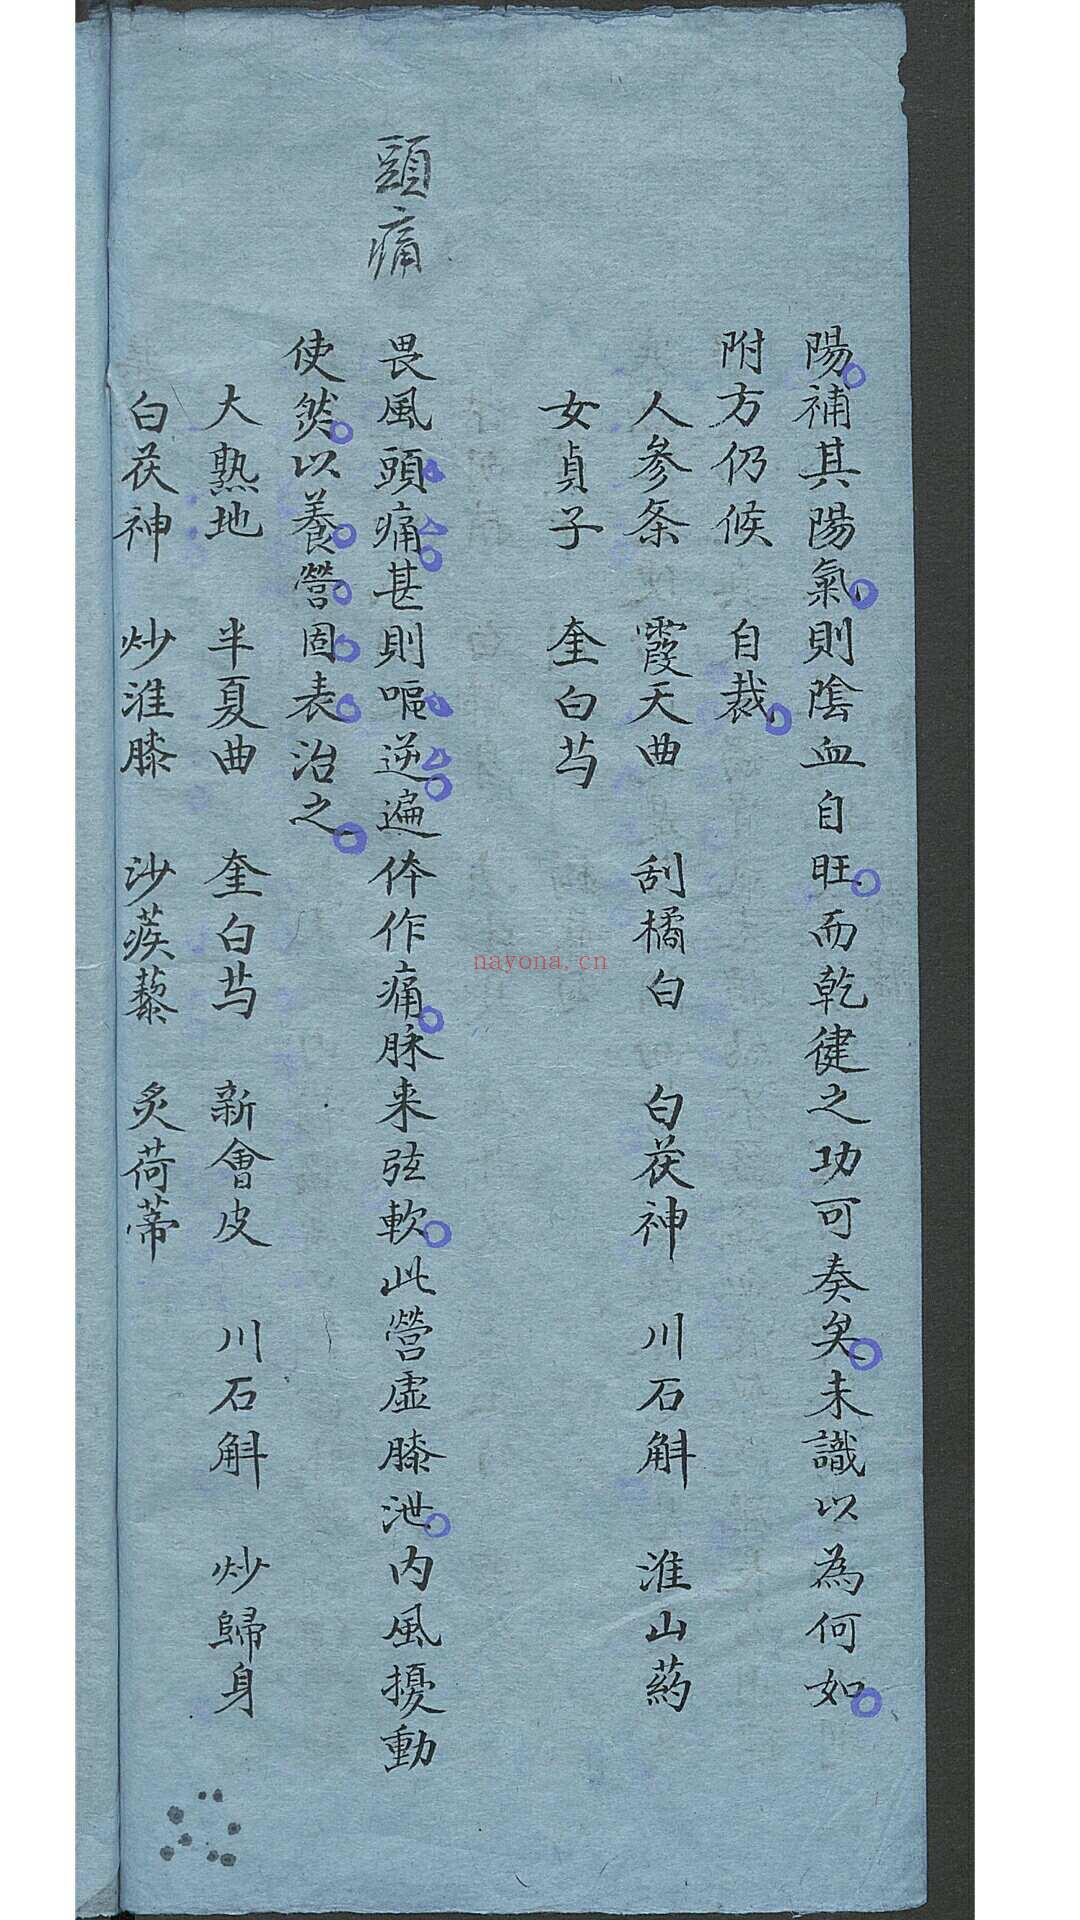 陽補其陽氣則陰血自旺而乾健之功可奏矣未識以為何如
附方仍候 自裁
人參条 霞天曲 刮橘白 白茯神 川石斛 淮山葯
女貞子 奎白芍
頭痛
畏風頭痛甚則嘔逆遍体作痛脉来弦軟此營虛膝泄内風擾動
使然以養營固表治之
大熟地 半夏曲 奎白芍 新會皮 川石斛 炒歸身
白茯神 炒淮膝 沙蒺藜 炙荷蒂
nayona.cn